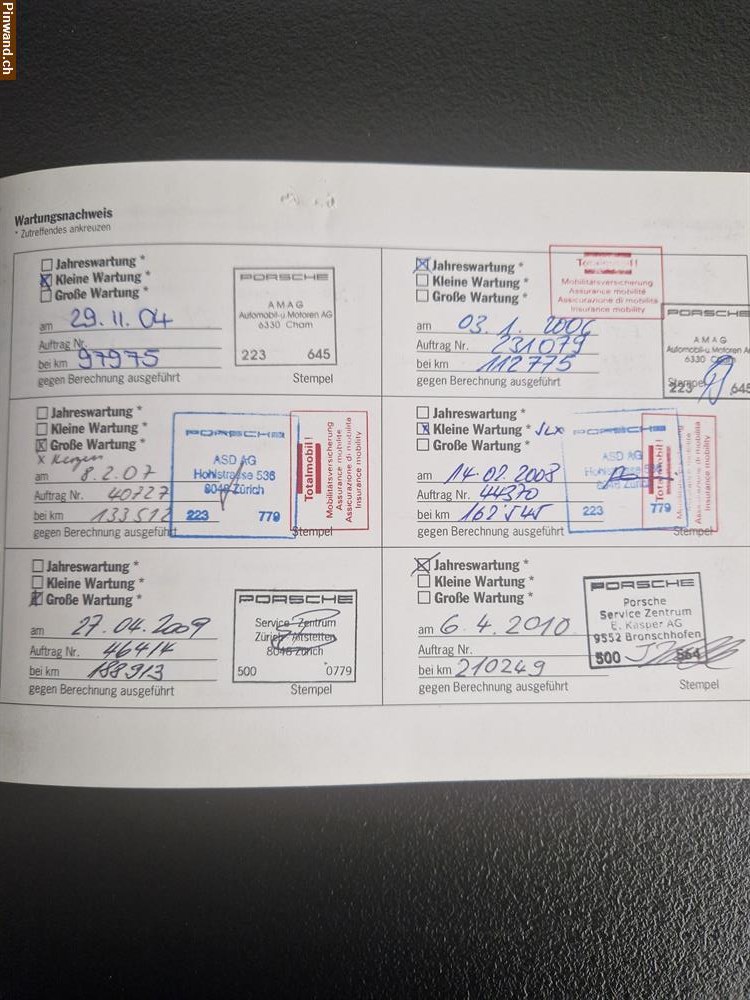 Pinwand.ch
Wartungsnachweis
* Zutreffendes ankreuzen
Jahreswartung *
Kleine Wartung *
Große Wartung *
am 29. 11. 04
Auftrag Nr.
bei km 97975
gegen Berechnung ausgeführt
PORSCHE
AMAG
Automobil-u. Motoren AG
6330 Cham
223 645
Stempel
Jahreswartung *
Kleine Wartung *
Große Wartung *
am 03. 1. 2006
Auftrag Nr. 231079
bei km 112775
gegen Berechnung ausgeführt
Mobilitätsversicherung
Assurance mobilité
Assicurazione di mobilità
Insurance mobility
PORSCHE
AMAG
Automobil-u. Motoren A
6330
Stempel
223 645
Jahreswartung *
Kleine Wartung *
Große Wartung *
am 8.2.07
Auftrag Nr. 40727
bei km 133512
gegen Berechnung ausgeführt
PORSCHE
ASD AG
Hohlstrasse 536
8048 Zürich
223 779
Totalmobil!
Mobilitätsversicherung
Assurance mobilité
Assicurazione di mobilità
Insurance mobility
Stempel
Jahreswartung *
Kleine Wartung *
Große Wartung *
am 14.02.2008
Auftrag Nr. 44370
bei km 162'545
gegen Berechnung ausgeführt
PORSCHE
ASD AG
223 779
Totalmobil!
Insurance mobility
Stempel
Jahreswartung *
Kleine Wartung *
Große Wartung *
am 27.04.2009
Auftrag Nr. 46414
bei km 188913
gegen Berechnung ausgeführt
PORSCHE
Service Zentrum
Zürich Altstetten
8048 Zürich
500 0779
Stempel
Jahreswartung *
Kleine Wartung *
Große Wartung *
am 6.4.2010
Auftrag Nr.
bei km 210249
gegen Berechnung ausgeführt
PORSCHE
Porsche
Service Zentrum
E. Kasper AG
9552 Bronschhofen
500 564
Stempel